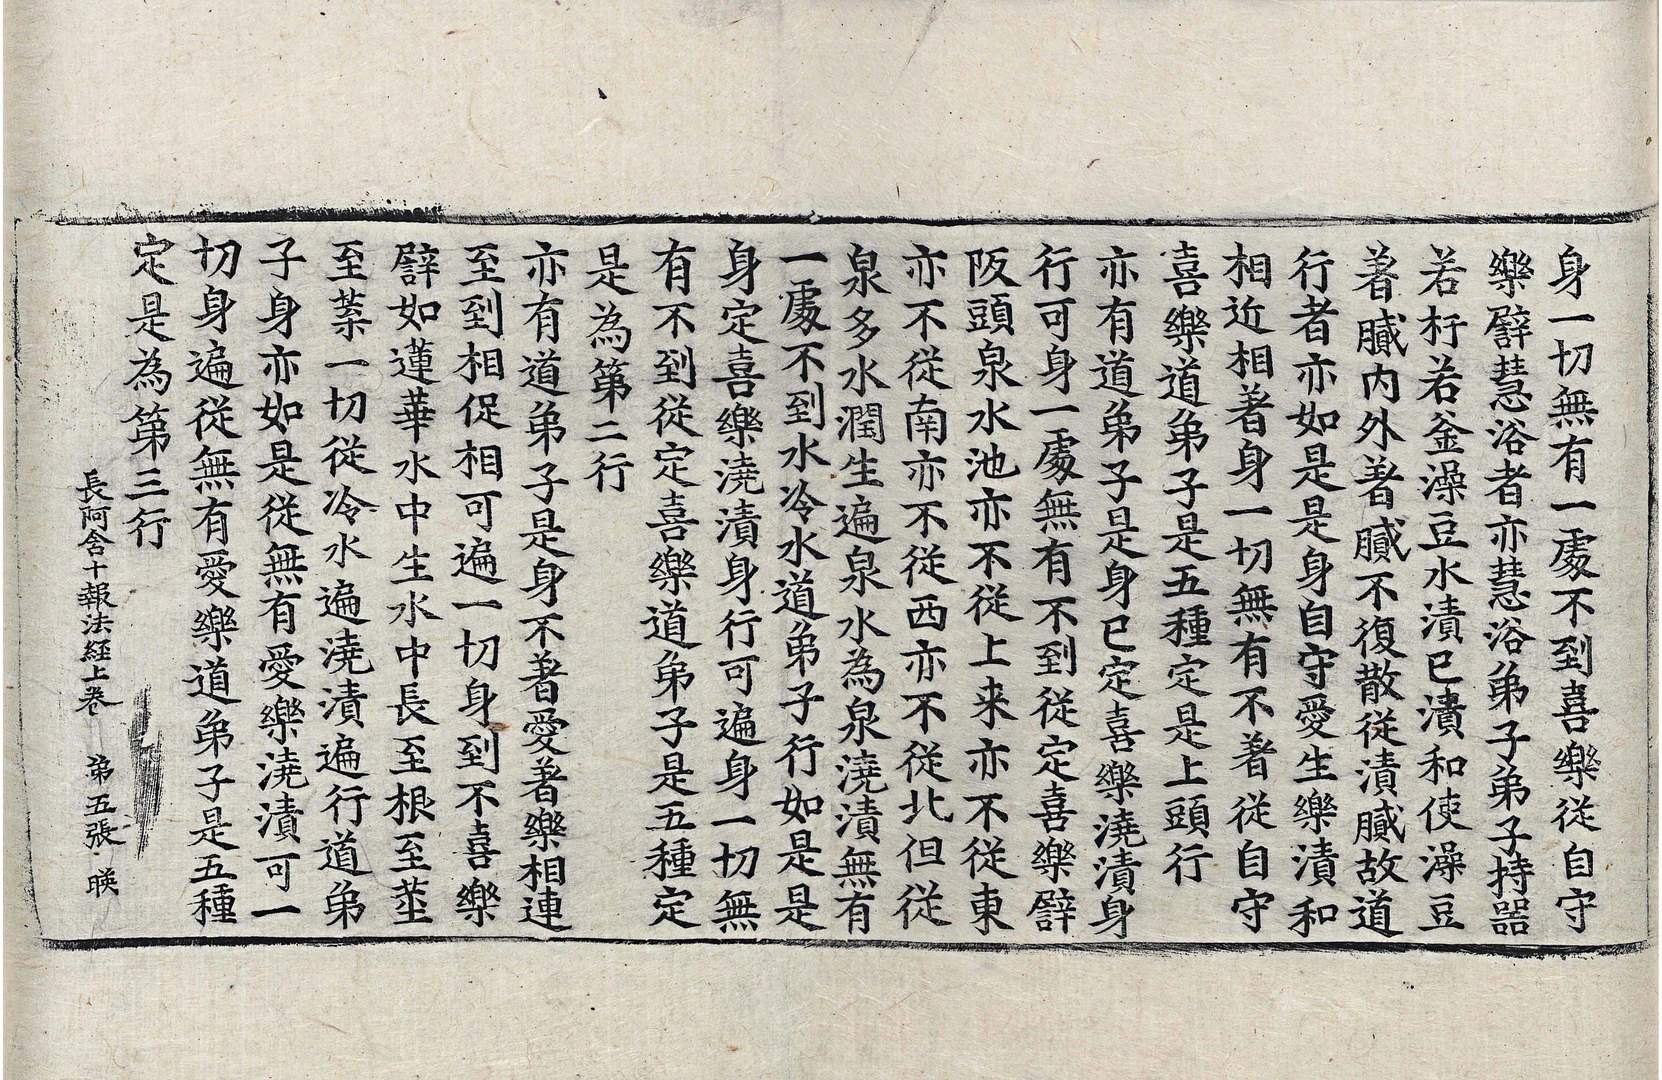 身一切無有一處不到喜樂從自守
樂譬慧浴者亦慧浴弟子弟子持器
若杅若釜澡豆水漬已漬和使澡豆
著膩內外著膩不復散從漬膩故道
行者亦如是是身自守愛生樂漬和
相近相著身一切無有不著從自守
喜樂道弟子是五種定是上頭行
亦有道弟子是身已定喜樂澆漬身
行可身一處無有不到從定喜樂譬
阪頭泉水池亦不從上来亦不從東
亦不從南亦不從西亦不從北但從
泉多水潤生遍泉水為泉澆漬無有
一處不到水冷水道弟子行如是是
身定喜樂澆漬身行可遍身一切無
有不到從定喜樂道弟子是五種定
是為第二行
亦有道弟子是身不著愛著樂相連
至到相促相可遍一切身到不喜樂
譬如蓮華水中生水中長至根至莖
至葉一切從冷水遍澆漬遍行道弟
子身亦如是從無有愛樂澆漬可一
切身遍從無有愛樂道弟子是五種
定是為第三行
長阿含十報法經上卷 第五張 暎